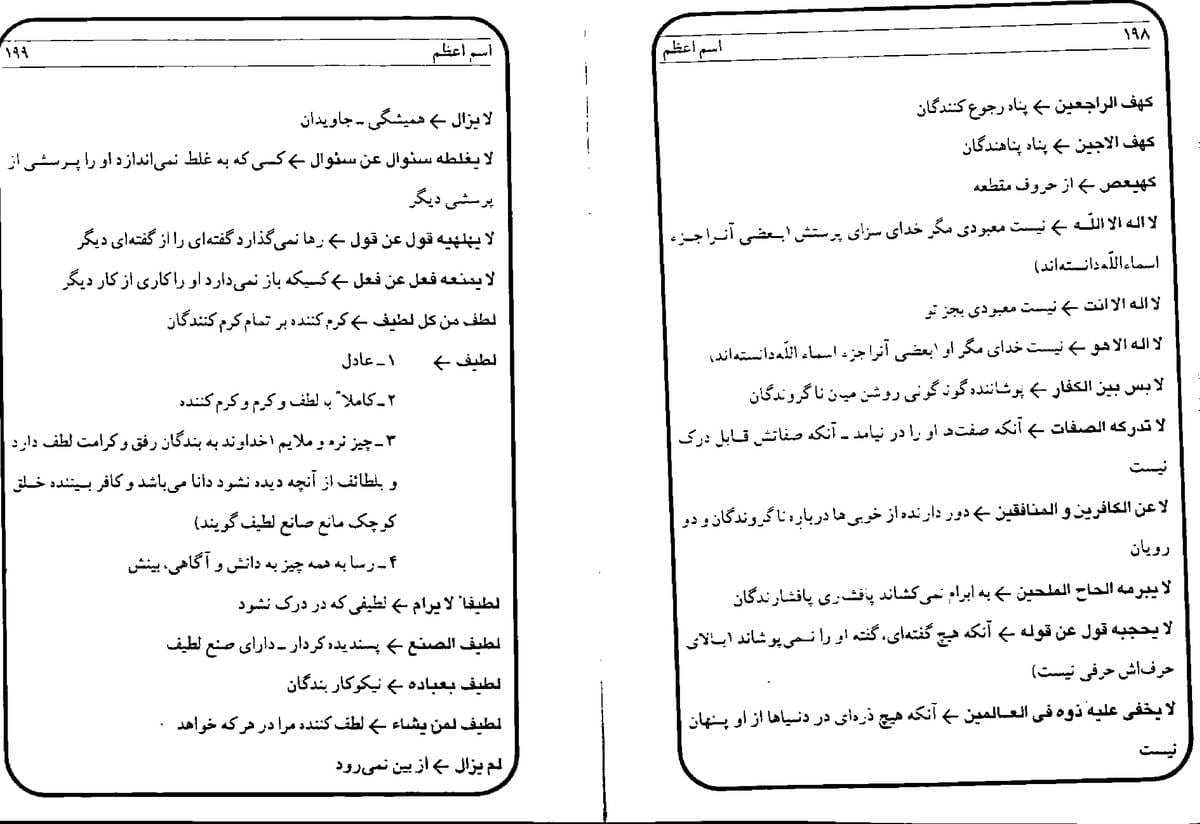 ۱۹۸
اسم اعظم
کهف الراجعین ← پناه رجوع کنندگان
کهف الاجین ← پناه پناهندگان
کهیعص ← از حروف مقطعه
لا اله الا اللّه ← نیست معبودی مگر خدای سزای پرستش (بعضی آنرا جزء
اسماءاللّه‌دانسته‌اند)
لا اله الا انت ← نیست معبودی بجز تو
لا اله الا هو ← نیست خدای مگر او (بعضی آنرا جزء اسماء اللّه‌دانسته‌اند)
لا بس بین الکفار ← پوشاننده گونه‌گونی روشن میان ناگروندگان
لا تدرکه الصفات ← آنکه صفت‌ها او را در نیامد ـ آنکه صفاتش قابل درک
نیست
لاعن الکافرین و المنافقین ← دور دارنده از خوبی‌ها درباره ناگروندگان و دو
رویان
لا یبرمه الحاح الملحین ← به ابرام نمی‌کشاند پافشاری پافشارندگان
لا یحجبه قول عن قوله ← آنکه هیچ گفته‌ای، گفته او را نمی‌پوشاند (بالای
حرف‌اش حرفی نیست)
لا یخفی علیه ذوه فی العالمین ← آنکه هیچ ذره‌ای در دنیاها از او پنهان
نیست
اسم اعظم
۱۹۹
لا یزال ← همیشگی ـ جاویدان
لا یغلطه سئوال عن سئوال ← کسی که به غلط نمی‌اندازد او را پرسشی از
پرسشی دیگر
لا یهلهیه قول عن قول ← رها نمی‌گذارد گفته‌ای را از گفته‌ای دیگر
لا یمنعه فعل عن فعل ← کسیکه باز نمی‌دارد او را کاری از کار دیگر
لطف من کل لطیف ← کرم کننده بر تمام کرم کنندگان
لطیف ← ۱ـ عادل
۲ـ کاملاً به لطف و کرم و کرم کننده
۳ـ چیز نره و ملایم (خداوند به بندگان رفق و کرامت لطف دارد
و بلطائف از آنچه دیده نشود دانا می‌باشد و کافر بیننده خلق
کوچک مانع صانع لطیف گویند)
۴ـ رسا به همه چیز به دانش و آگاهی، بینش
لطیفاً لا یرام ← لطیفی که در درک نشود
لطیف الصنع ← پسندیده کردار ـ دارای صنع لطیف
لطیف بعباده ← نیکوکار بندگان
لطیف لمن یشاء ← لطف کننده مرا در هر که خواهد
لم یزال ← از بین نمی‌رود